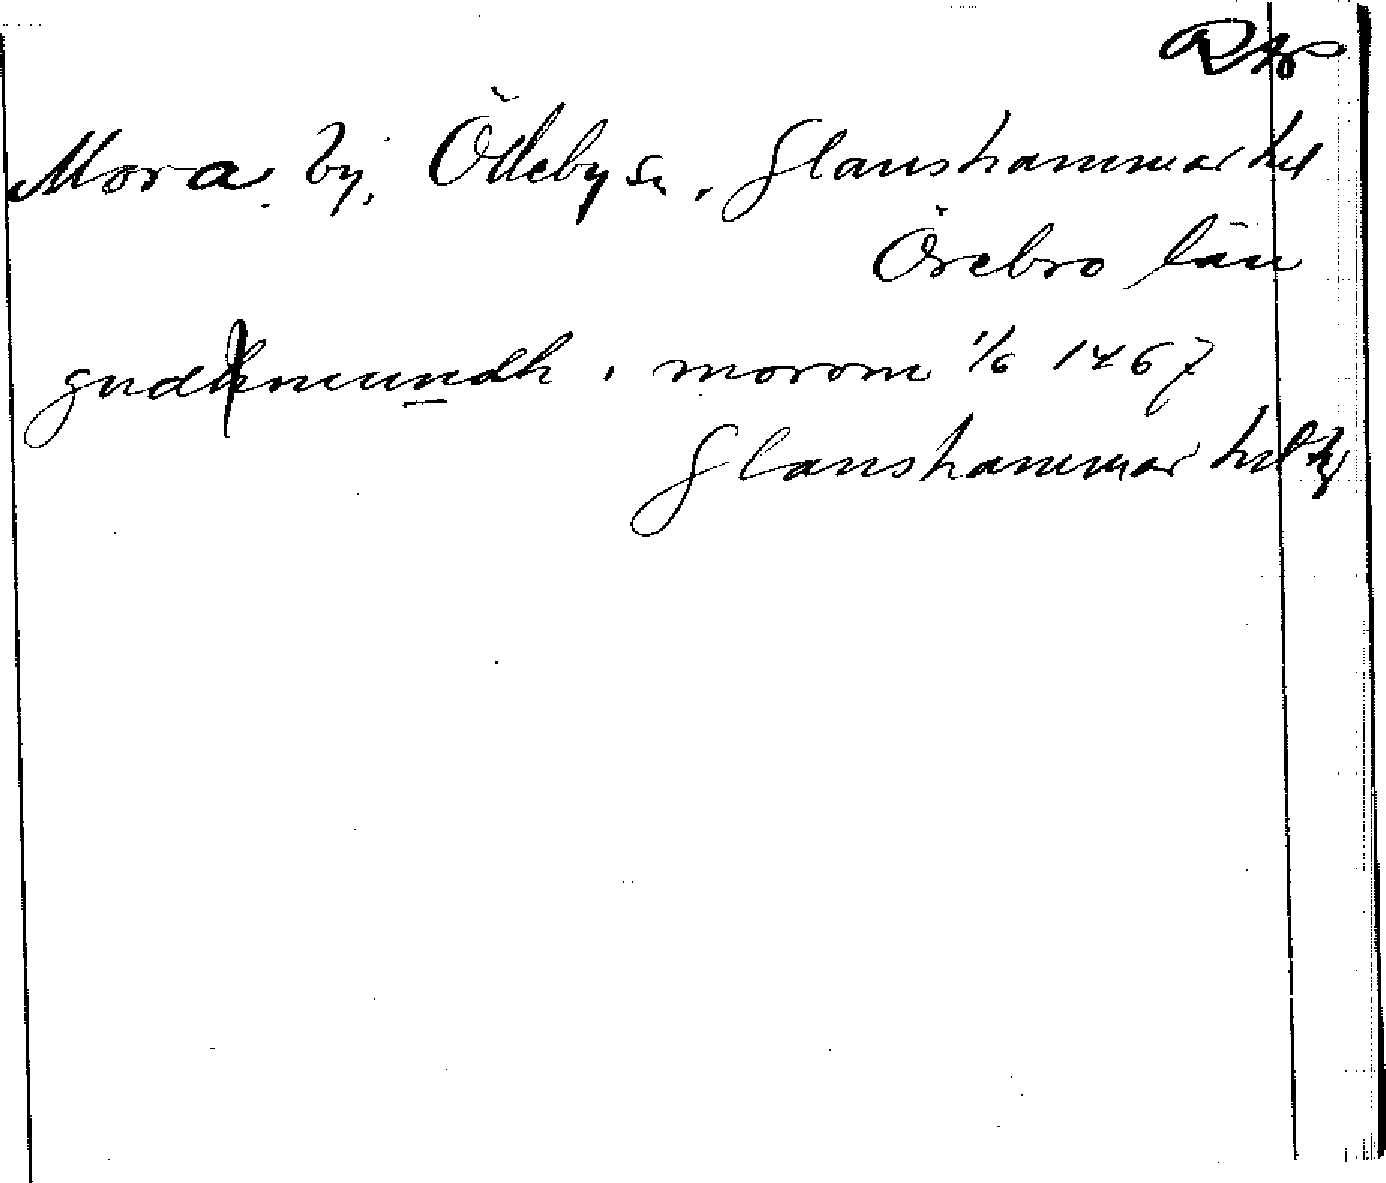 Mora by, Ödeby sn, Glanshammar hd
Örebro län
gudhmundh i morom 1/6 1467
Glanshammar hd